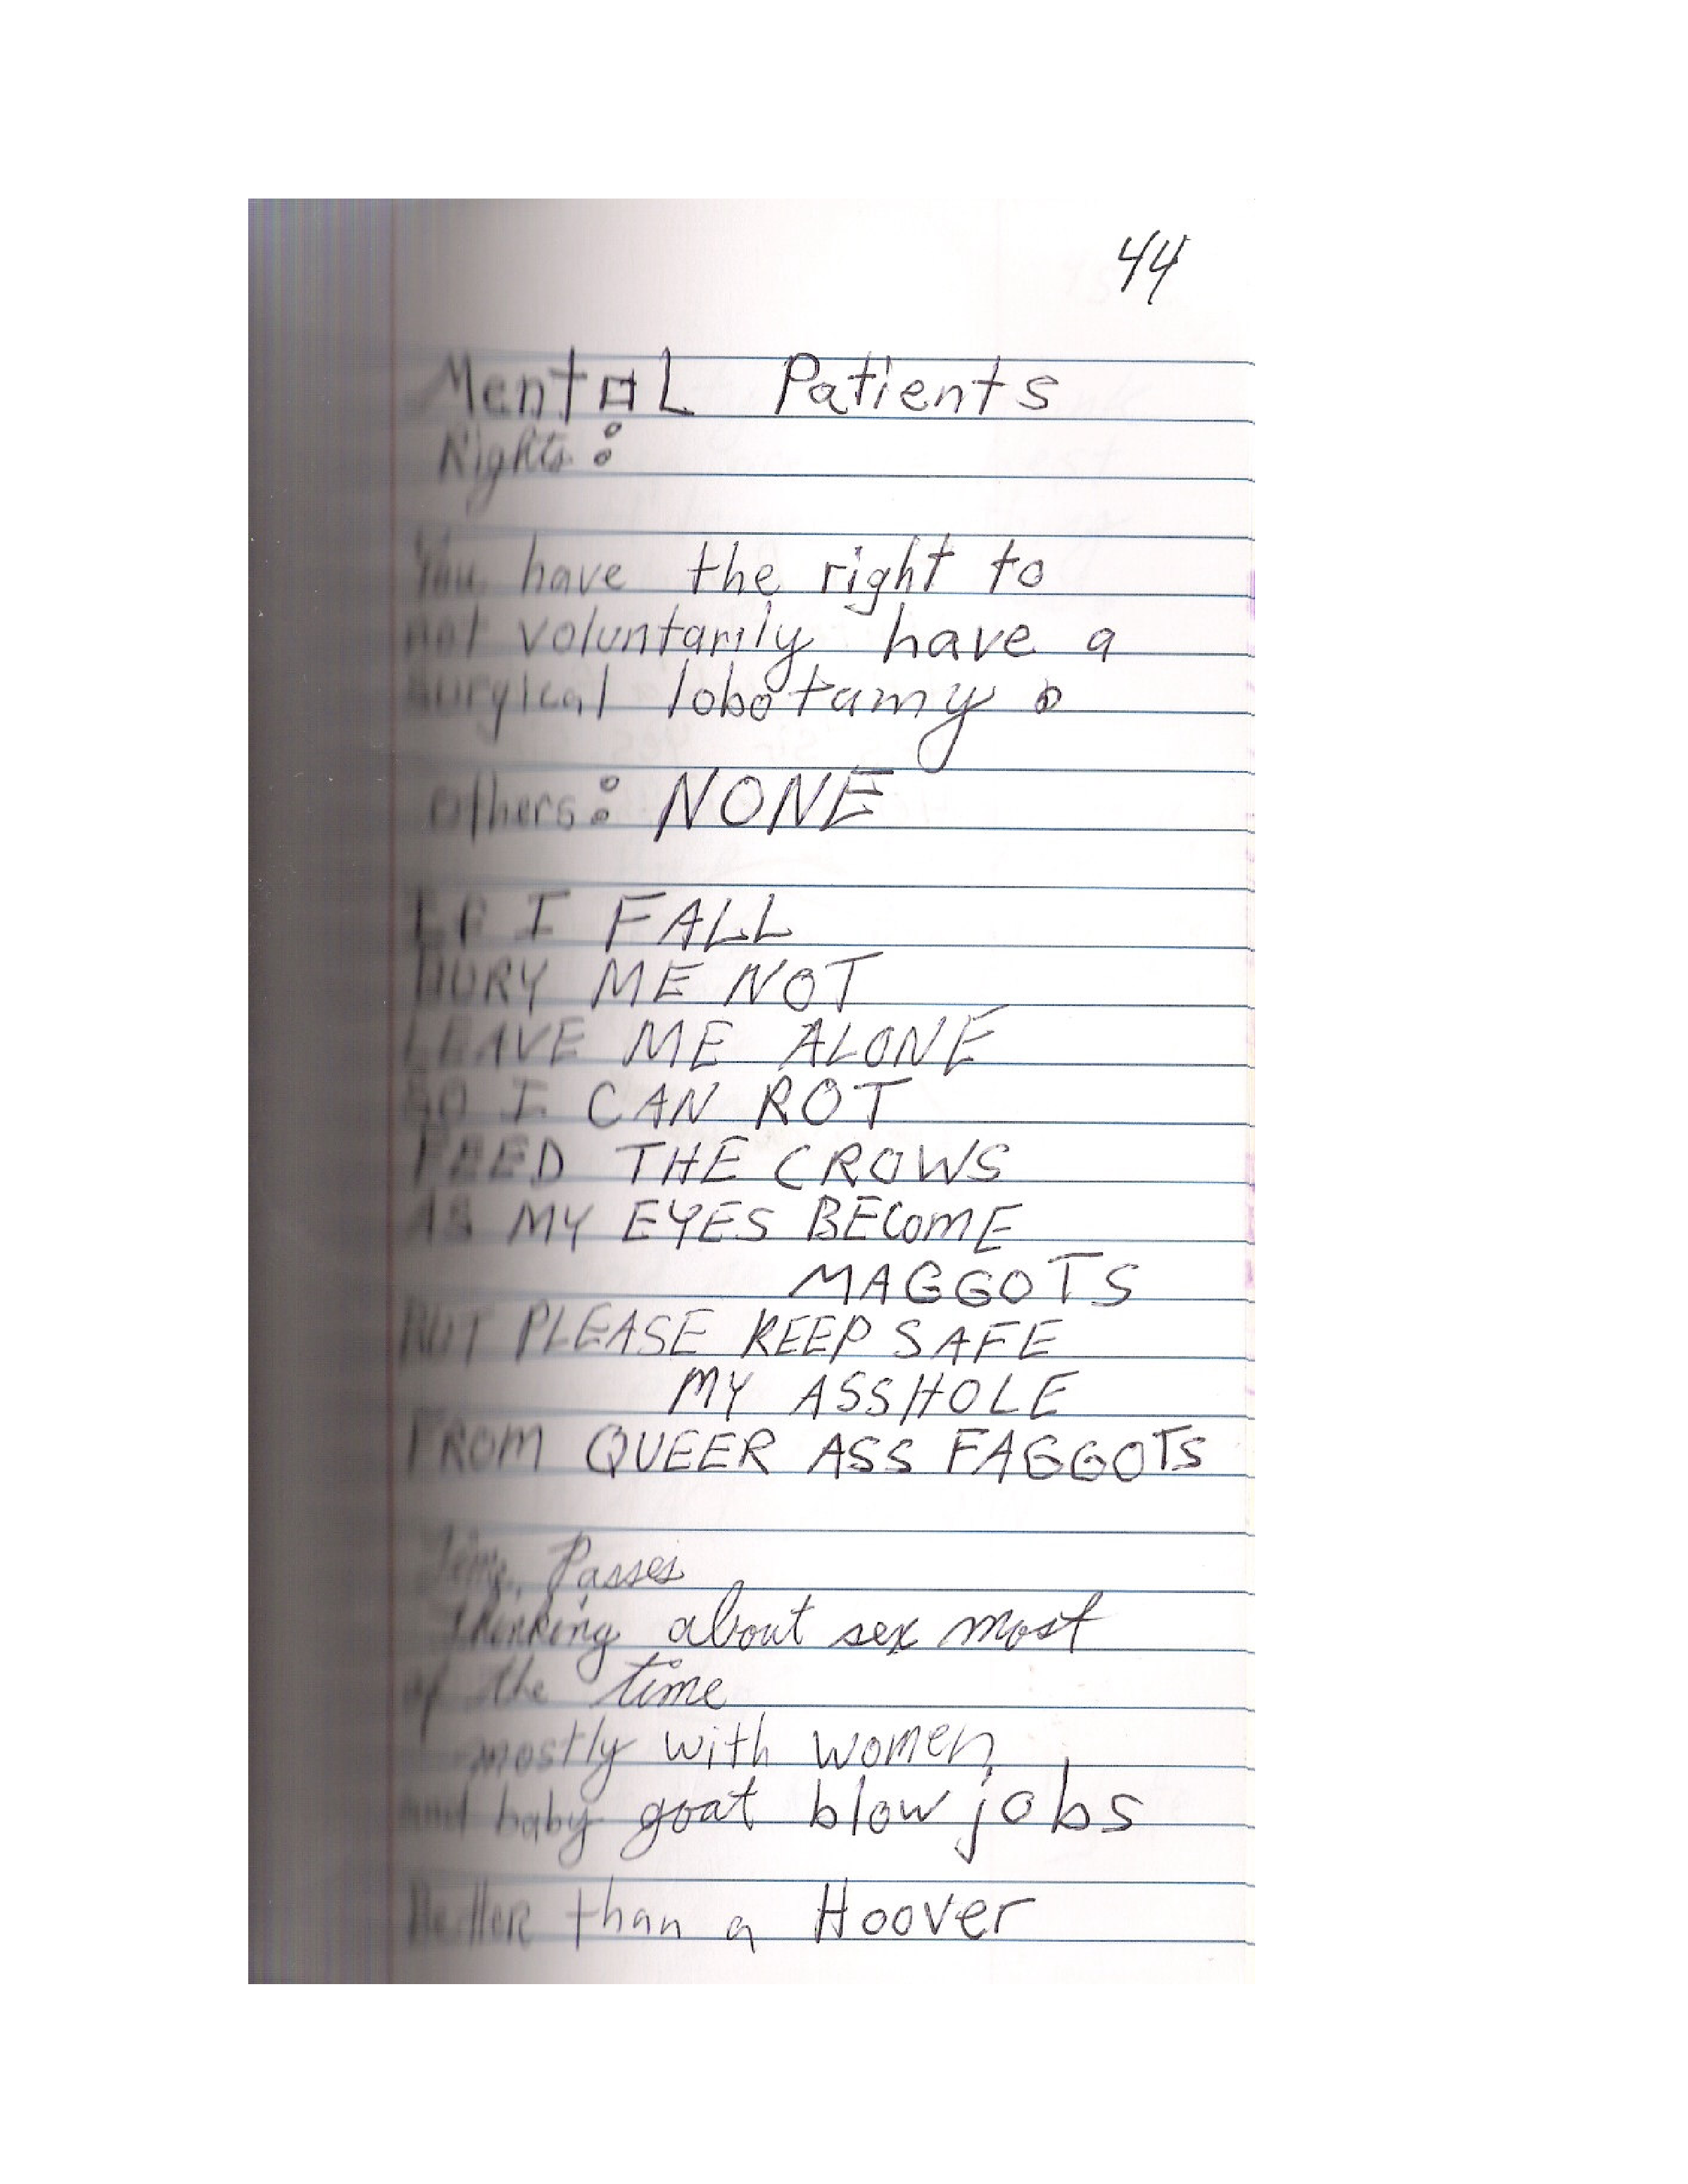 44
Mental Patients
Rights:
You have the right to
not voluntarily have a
surgical lobotamy.
others: NONE
IF I FALL
BURY ME NOT
LEAVE ME ALONE
SO I CAN ROT
FEED THE CROWS
AS MY EYES BECOME
MAGGOTS
BUT PLEASE KEEP SAFE
MY ASSHOLE
FROM QUEER ASS FAGGOTS
Time Passes
thinking about sex most
of the time
mostly with women
and baby goat blow jobs
Better than a Hoover